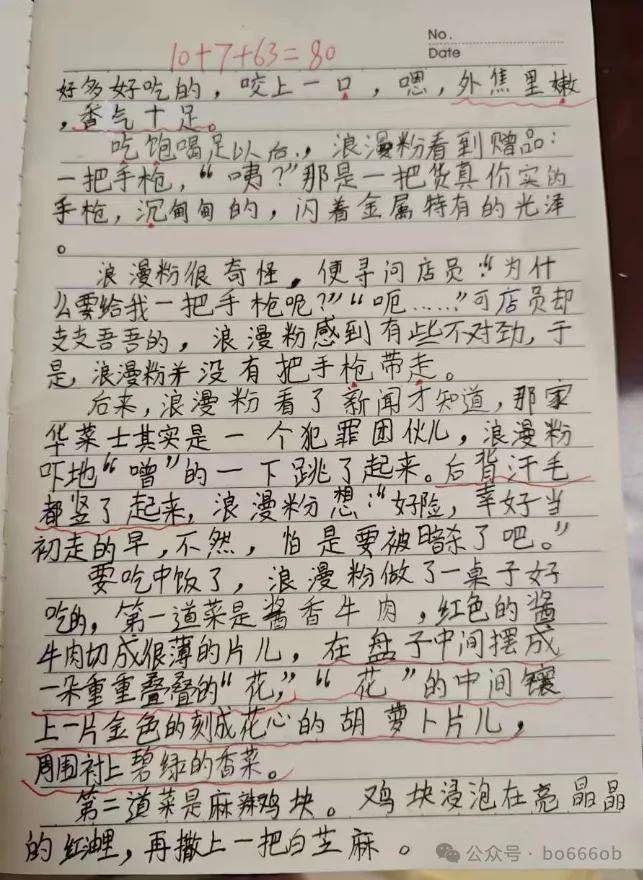 No.
Date
10+7+63=80
好多好吃的，咬上一口，嗯，外焦里嫩
，香气十足。
吃饱喝足以后，浪漫粉看到赠品：
一把手枪，“咦？”那是一把货真价实的
手枪，沉甸甸的，闪着金属特有的光泽
。
浪漫粉很奇怪，便寻问店员：“为什
么要给我一把手枪呢？”“呃……”可店员却
支支吾吾的，浪漫粉感到有些不对劲，于
是，浪漫粉并没有把手枪带走。
后来，浪漫粉看了新闻才知道，那家
华莱士其实是一个犯罪团伙儿，浪漫粉
吓地“噌”的一下跳了起来。后背汗毛
都竖了起来，浪漫粉想：“好险，幸好当
初走的早，不然，怕是要被暗杀了吧。”
要吃中饭了，浪漫粉做了一桌子好
吃的，第一道菜是酱香牛肉，红色的酱
牛肉切成很薄的片儿，在盘子中间摆成
一朵重重叠叠的“花”，“花”的中间镶
上一片金色的刻成花心的胡萝卜片儿，
周围衬上碧绿的香菜。
第二道菜是麻辣鸡块。鸡块浸泡在亮晶晶
的红油里，再撒上一把白芝麻。
公众号·bo666ob